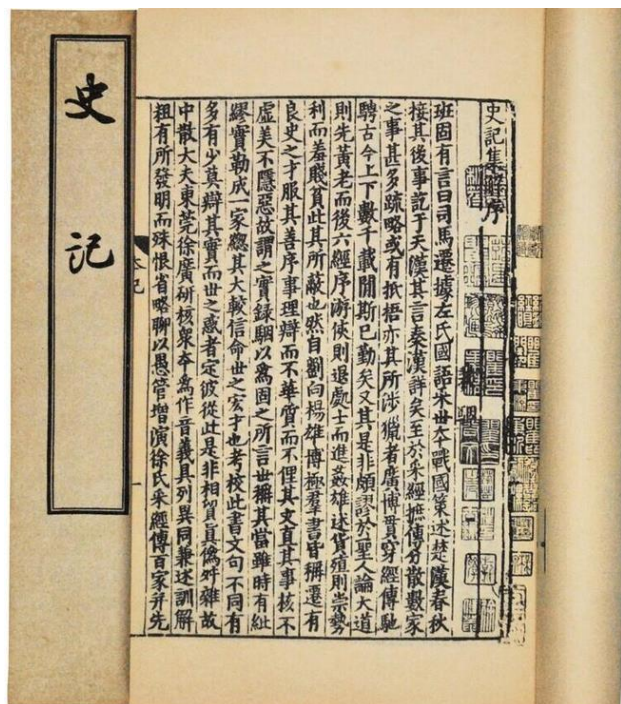 史記
史記集解序
班固有言曰司馬遷據左氏國語采世夲戰國策述楚漢春秋
接其後事訖于天漢其言秦漢詳矣至於采經摭傳分散數家
之事甚多疏略或有抵梧亦其所涉獵者廣博貫穿經傳馳
騁古今上下數千載閒斯已勤矣又其是非頗謬於聖人論大道
則先黃老而後六經序游俠則退處士而進姦雄述貨殖則崇勢
利而羞賤貧此其所蔽也然自劉向揚雄博極羣書皆稱遷有
良史之才服其善序事理辯而不華質而不俚其文直其事核不
虛美不隱惡故謂之實録駰以爲固之所言世稱其當雖時有紕
繆實勒成一家緫其大較信命世之宏才也考校此書文句不同有
多有少莫辯其實而世之惑者定彼從此是非相貿眞僞舛雜故
中散大夫東莞徐廣研核衆夲爲作音義具列異同兼述訓解
粗有所發明而殊恨省略聊以愚管增演徐氏采經傳百家幷先